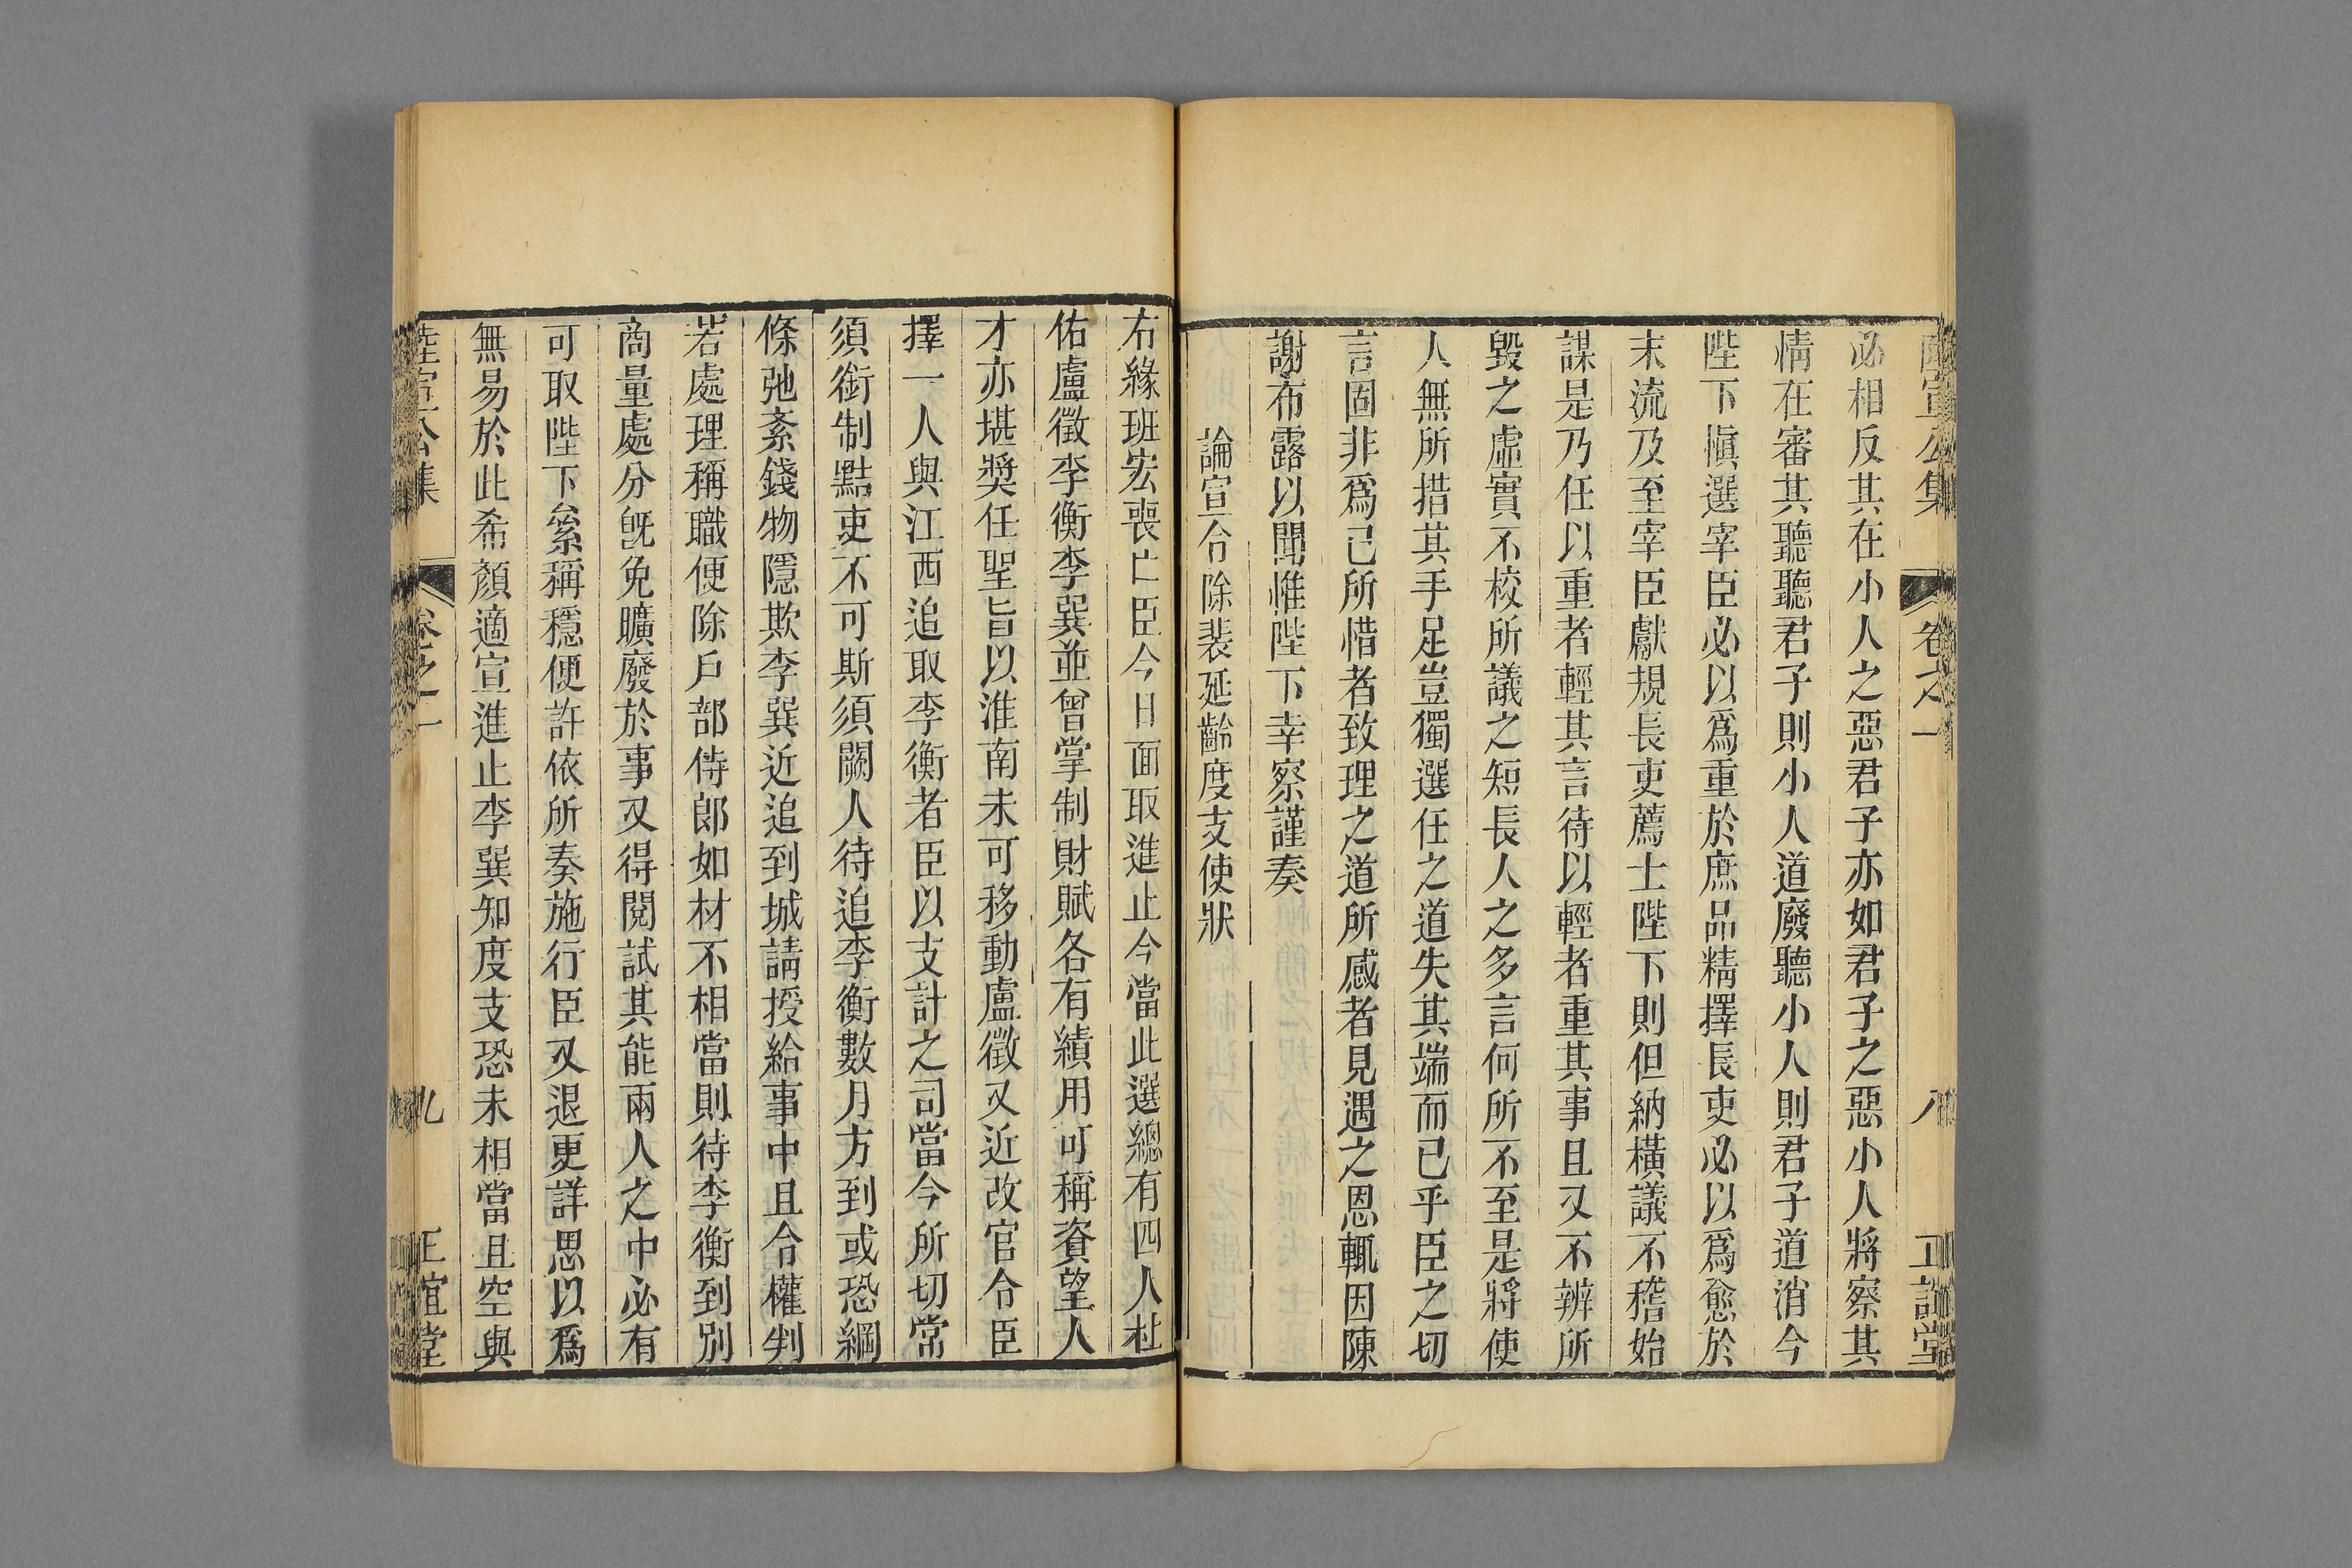 陸宣公集 卷之一 八 正誼堂
必相反其在小人之惡君子亦如君子之惡小人將察其
情在審其聽聽君子則小人道廢聽小人則君子道消今
陛下愼選宰臣必以爲重於庶品精擇長吏必以爲愈於
末流及至宰臣獻規長吏薦士陛下則但納橫議不稽始
謀是乃任以重者輕其言待以輕者重其事且又不辨所
毀之虛實不校所議之短長人之多言何所不至是將使
人無所措其手足豈獨選任之道失其端而已乎臣之切
言固非爲己所惜者致理之道所感者見遇之恩輒因陳
謝布露以聞惟陛下幸察謹奏
論宣令除裴延齡度支使狀
右緣班宏喪亡臣今日面取進止今當此選總有四人杜
佑盧徵李衡李巽並曾掌制財賦各有績用可稱資望人
才亦堪獎任聖旨以淮南未可移動盧徵又近改官令臣
擇一人與江西追取李衡者臣以支計之司當今所切常
須銜制黠吏不可斯須闕人待追李衡數月方到或恐綱
條弛紊錢物隱欺李巽近追到城請授給事中且令權判
若處理稱職便除戶部侍郎如材不相當則待李衡到別
商量處分旣免曠廢於事又得閱試其能兩人之中必有
可取陛下絫稱穩便許依所奏施行臣又退更詳思以爲
無易於此希顏適宣進止李巽知度支恐未相當且空與
陸宣公集 卷之一 九 正誼堂